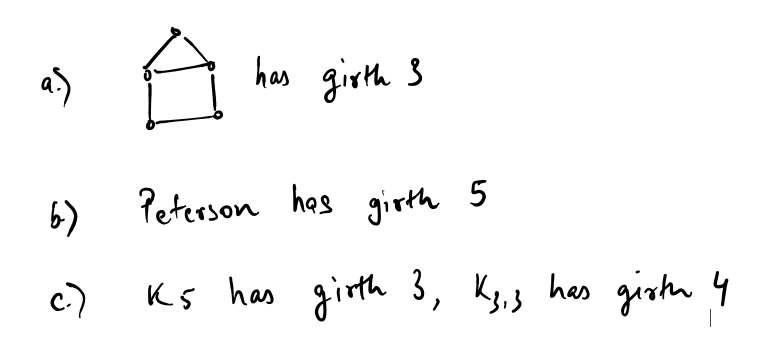 a.) has girth 3
b.) Peterson has girth 5
c.) K5 has girth 3, K3,3 has girth 4